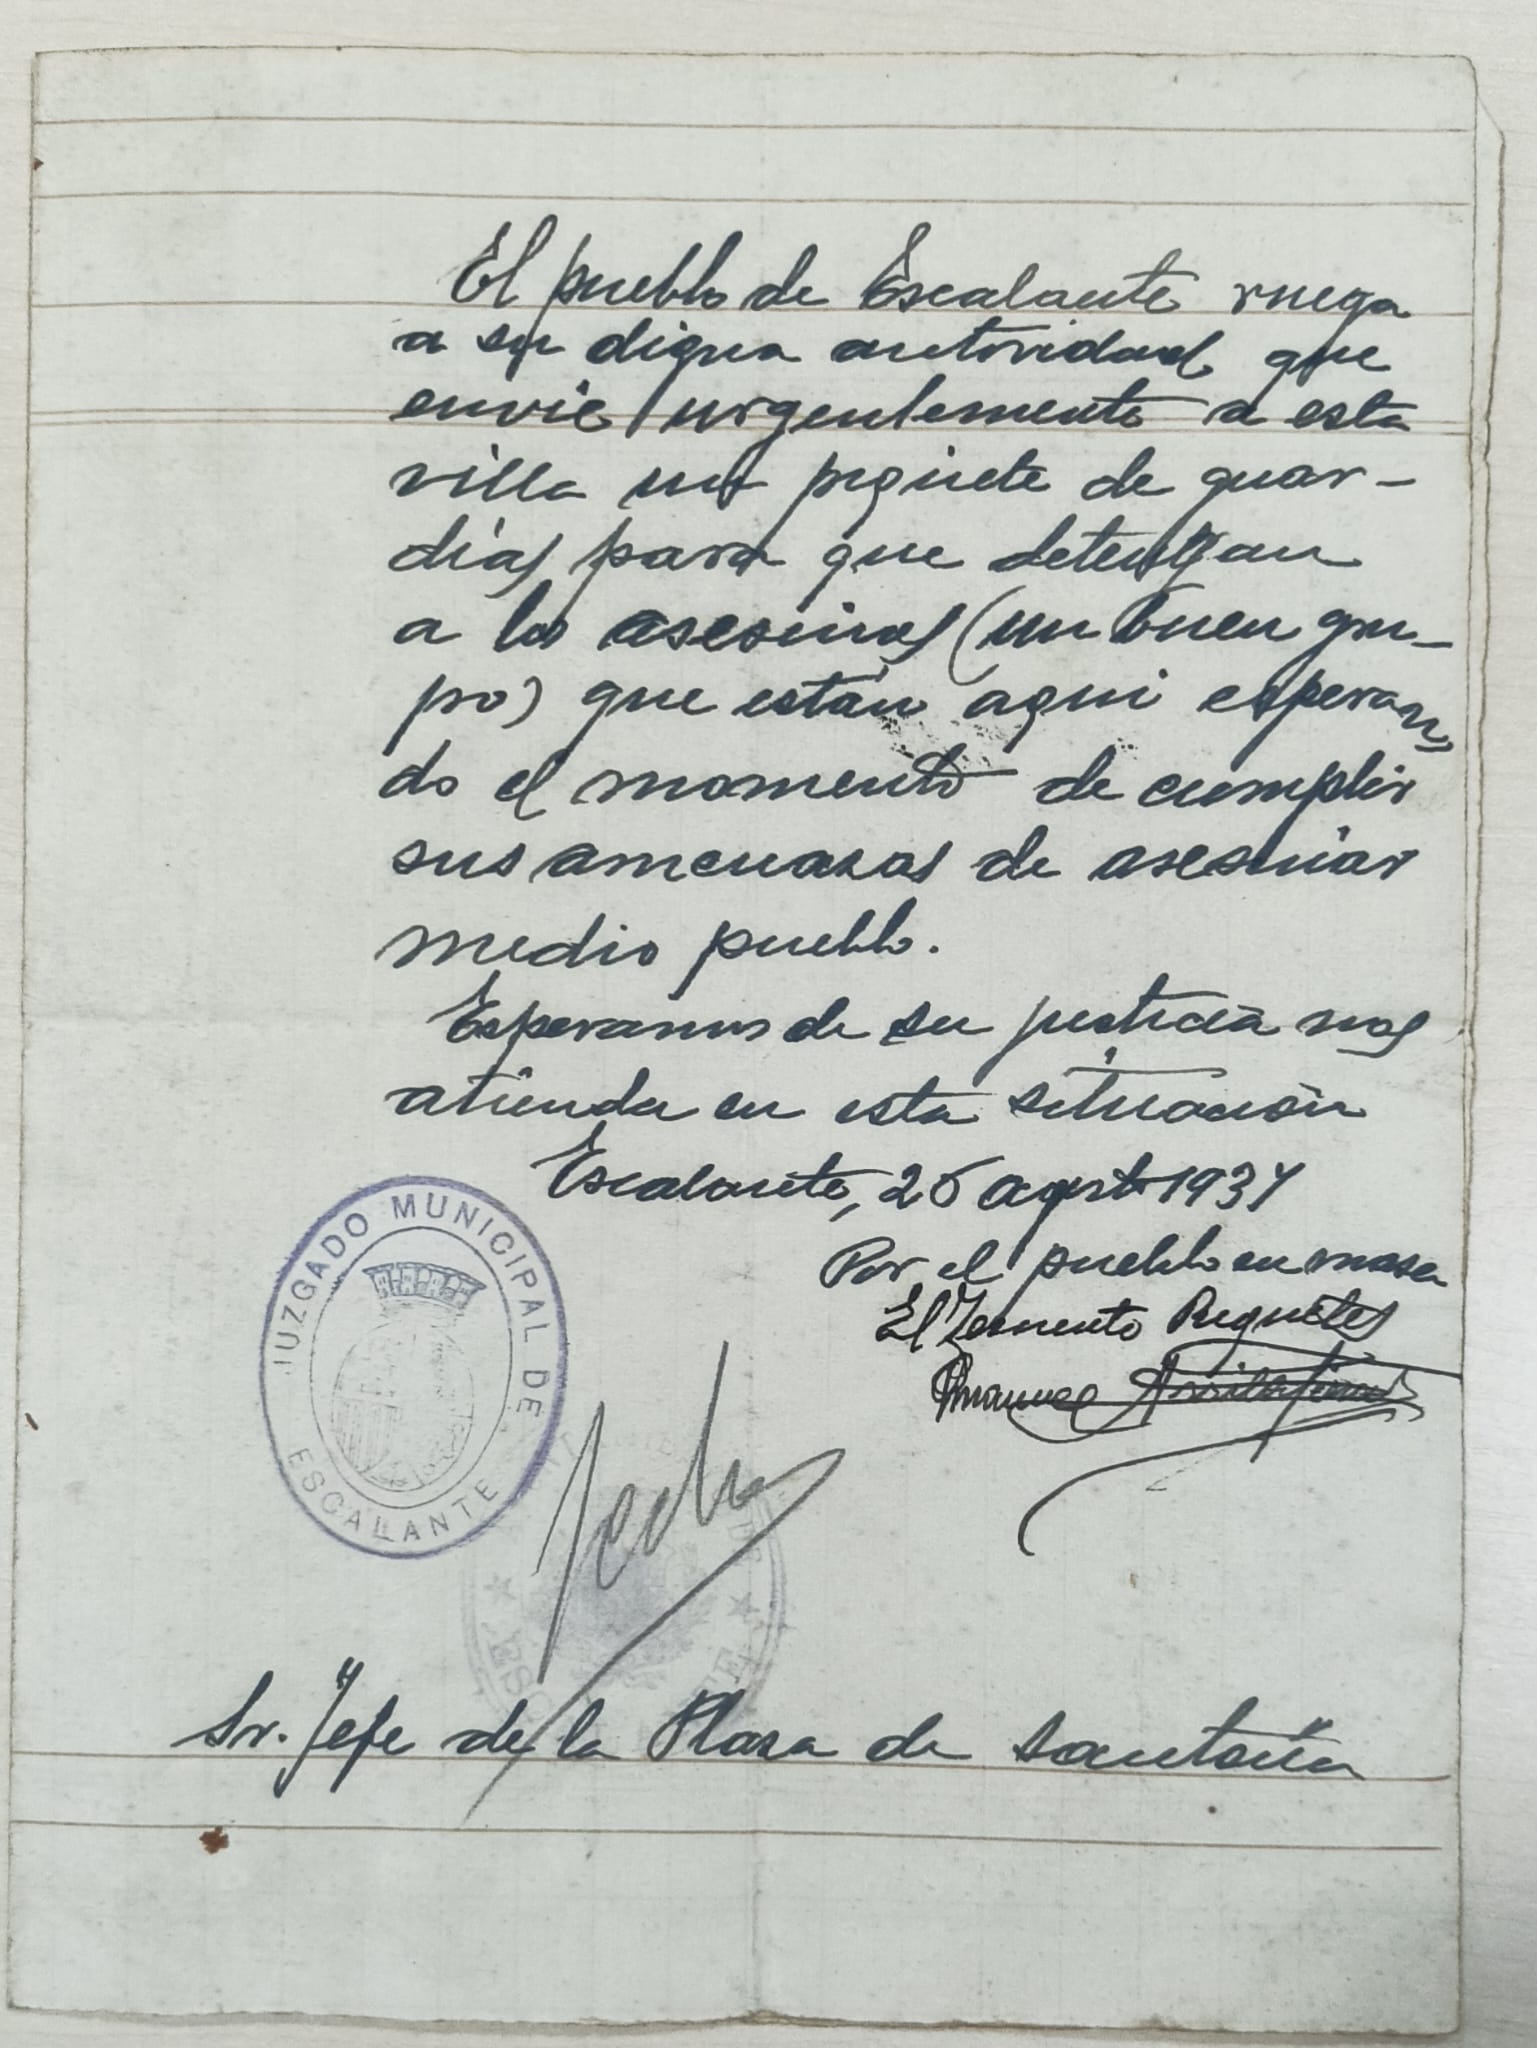 El pueblo de Escalante ruega
a su digna autoridad que
envie urgentemente a esta
villa un piquete de guar-
dias para que detengan
a los asesinos (un buen gru-
po) que están aqui esperan
do el momento de cumplir
sus amenazas de asesinar
medio pueblo.
Esperamos de su justicia nos
atienda en esta situación
Escalante, 26 agosto 1937
Por el pueblo en masa
El Requetes
Manuel
JUZGADO MUNICIPAL DE
ESCALANTE
Sr. Jefe de la Plaza de Santoña